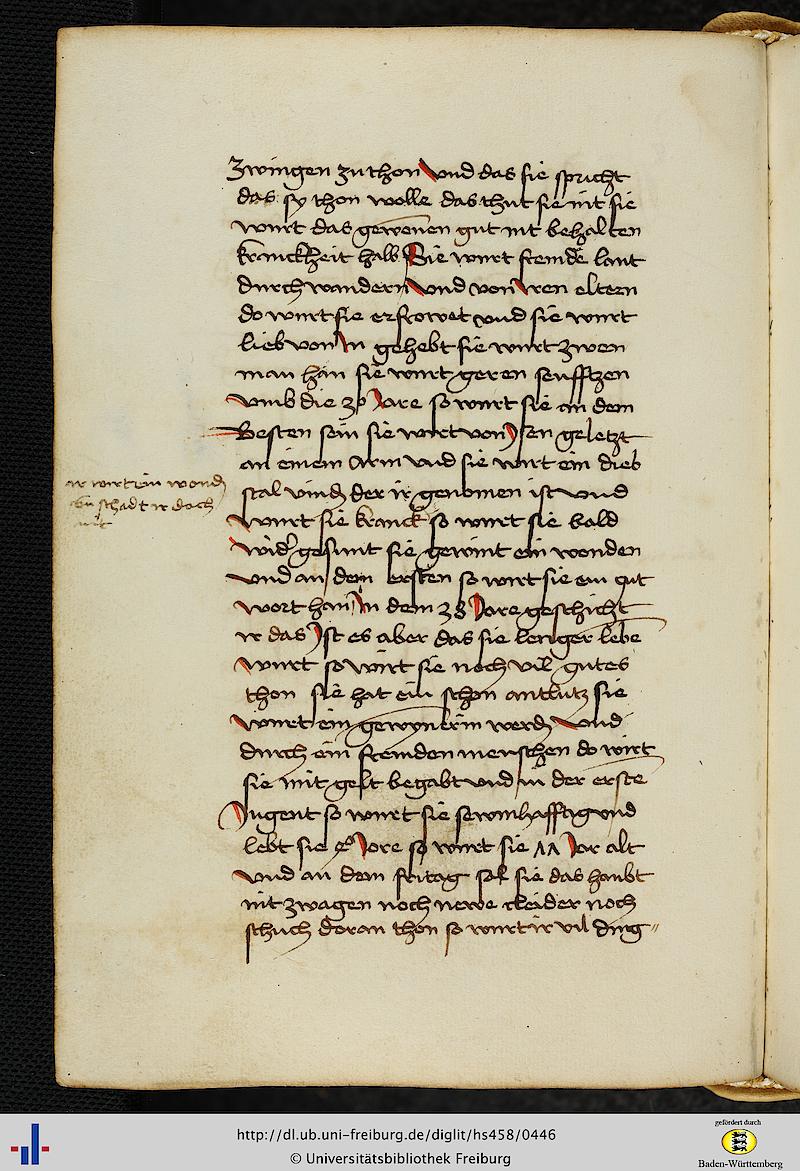 zwingen zu thon und das sie spricht
das sy thon wolle das thut sie nit sie
wurt das gewonen gut nit behalten
kranckheit halb Sie wurt fremde lant
durch wandern und von iren eltern
do wurt sie erfrowet und sie wurt
lieb von in gehebt sie wurt zwen
man han sie wurt geren seufftzen
umb die 30 Jore so wurt sie an dem
Besten sein sie wirt von Isen geletzt
an einem Arm und sie wirt ein dieb
stal vinden der ir genomen ist und
wurt sie kranck so wurt sie bald
wider gesunt sie gewint ein wonden
und an dem ersten so wirt sie ein gut
wort han In dem 38 Jore geschicht
ir das Ist es aber das sie lenger lebe
wurt so wirt sie noch vil gutes
thon sie hat ein schon antlutz sie
wurt ein gewynnerin werden und
durch ein fremden menschen do wirt
sie mit gelt begabt und in der erste
Jugent so wurt sie
lebt sie Jore so wurt sie ΛΛ Jor alt
und an dem fritag sol sie das haubt
nit zwagen noch newe cleider noch
schuch doran thon so wurt ir vil ding
ir wirt ein wonden
schadt ir doch
nit
http://dl.ub.uni-freiburg.de/diglit/hs458/0446
© Universitätsbibliothek Freiburg
gefördert durch
Baden-Württemberg